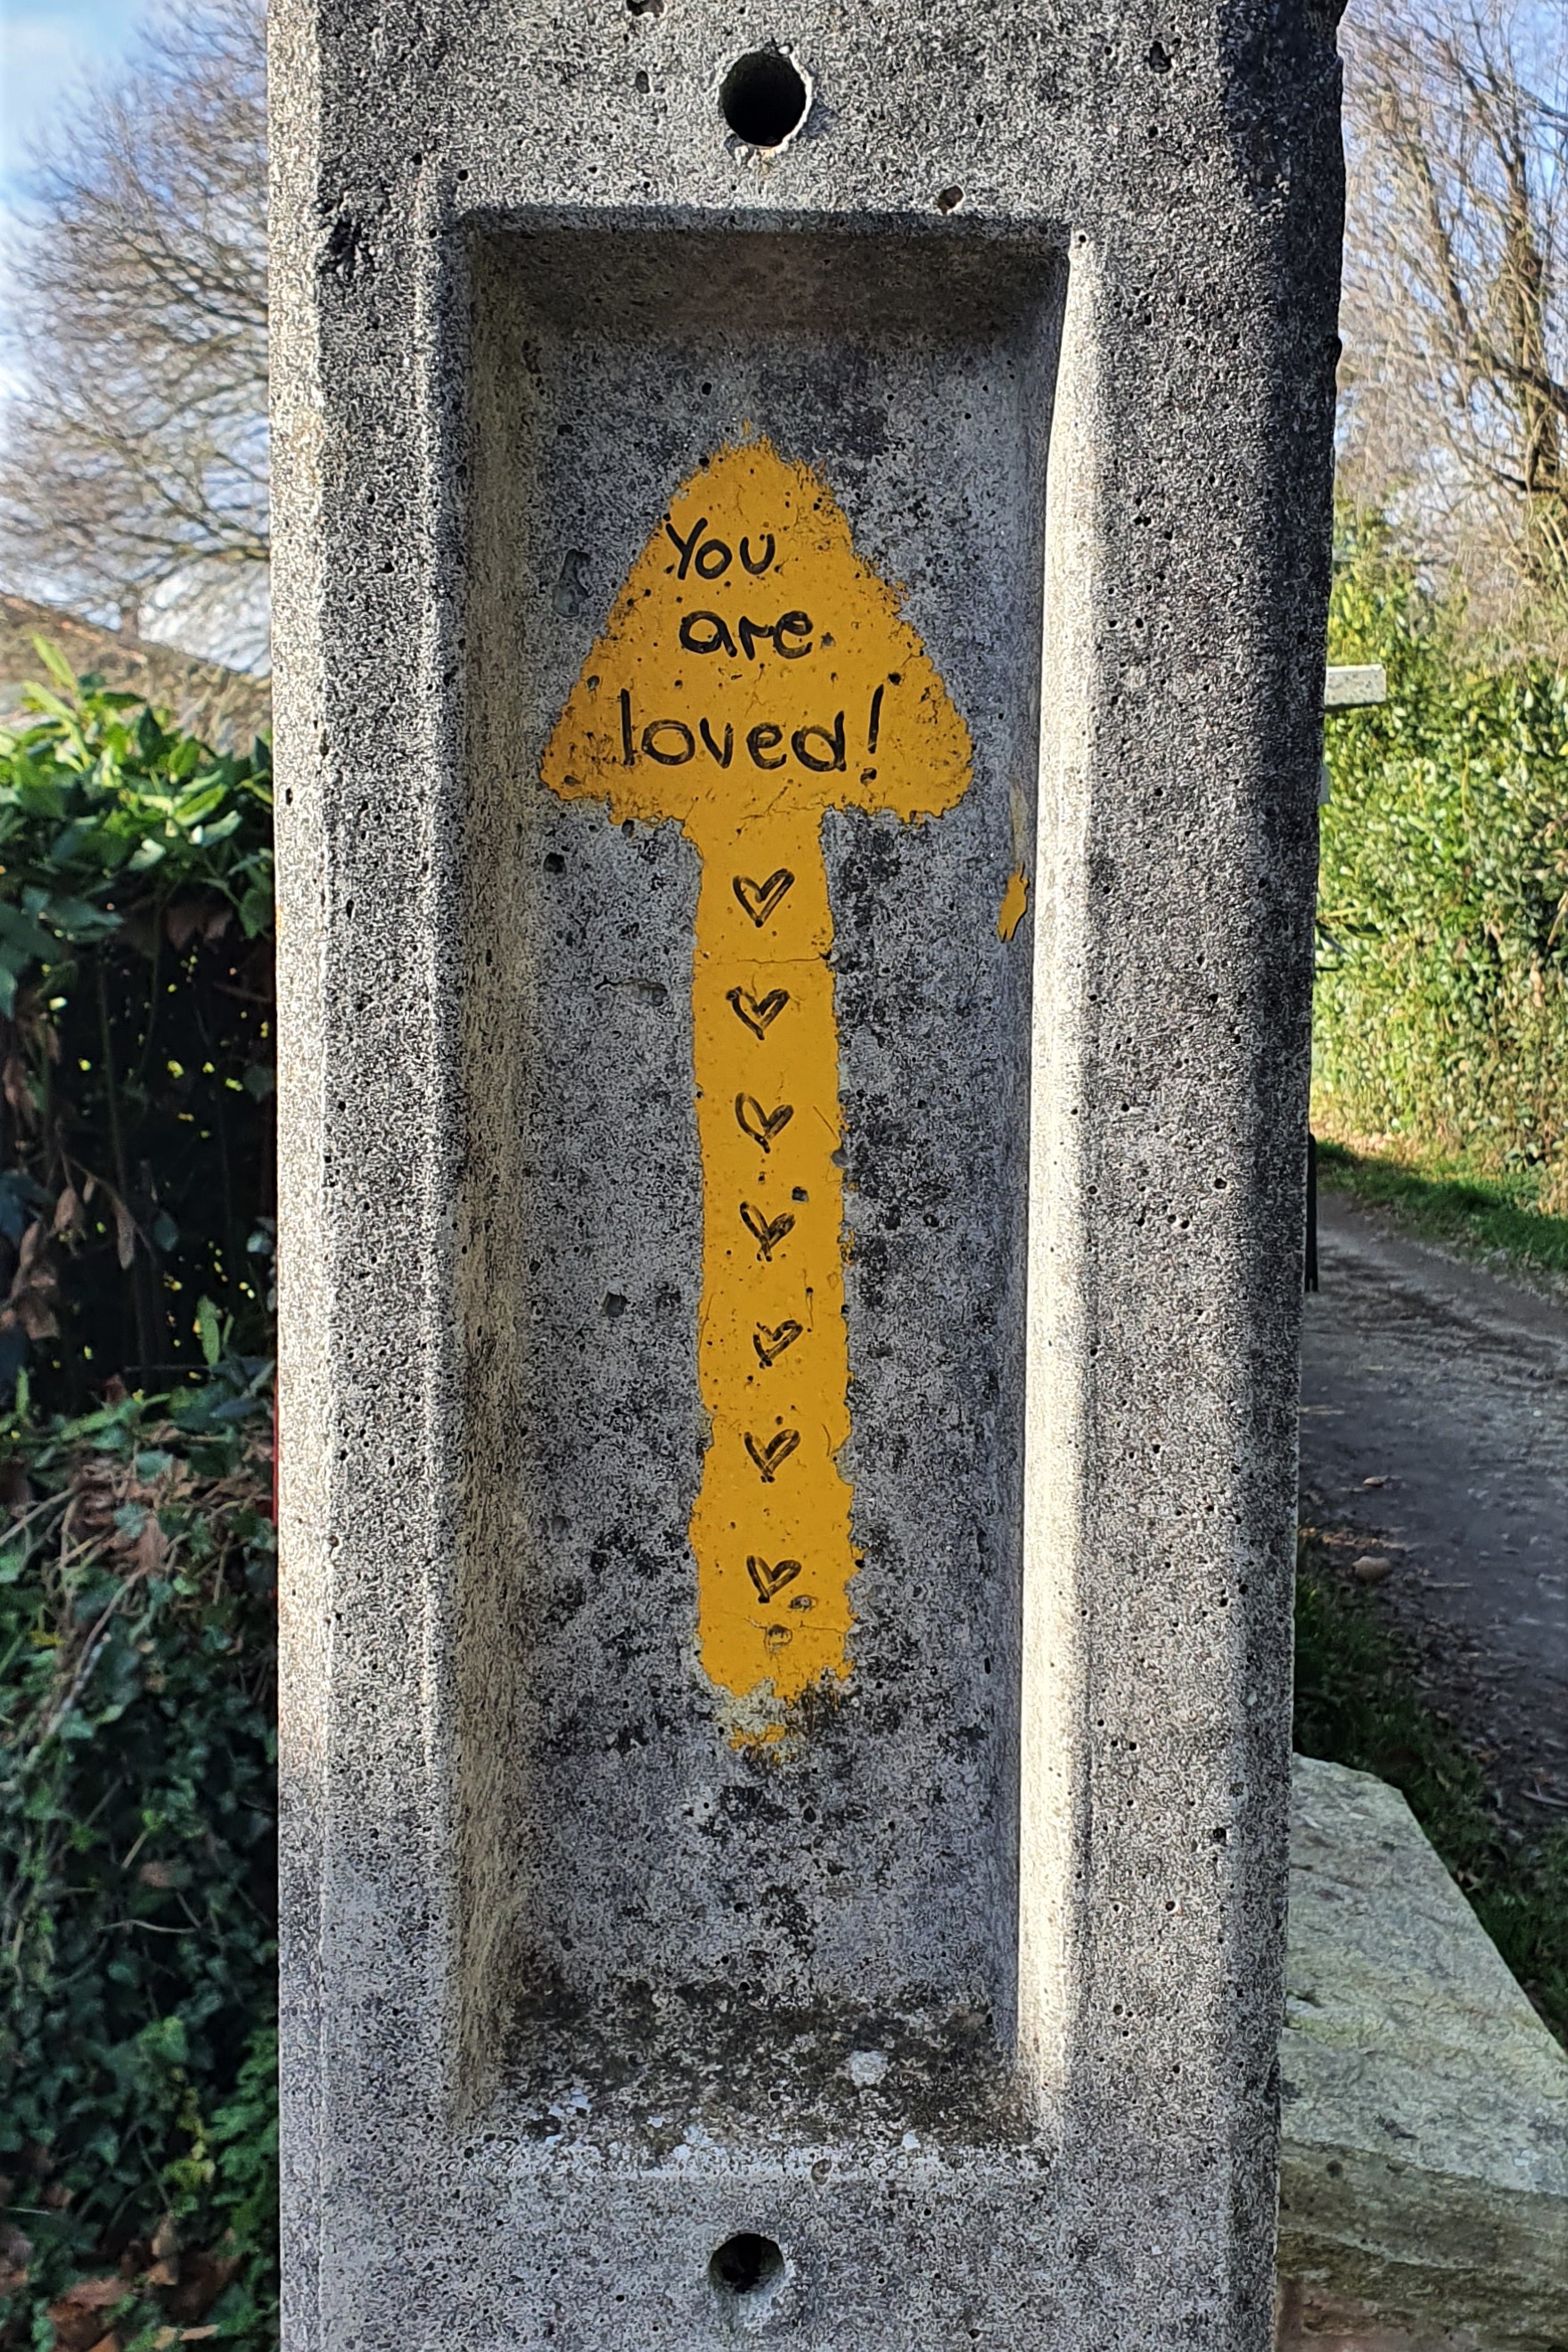 You
are
loved!